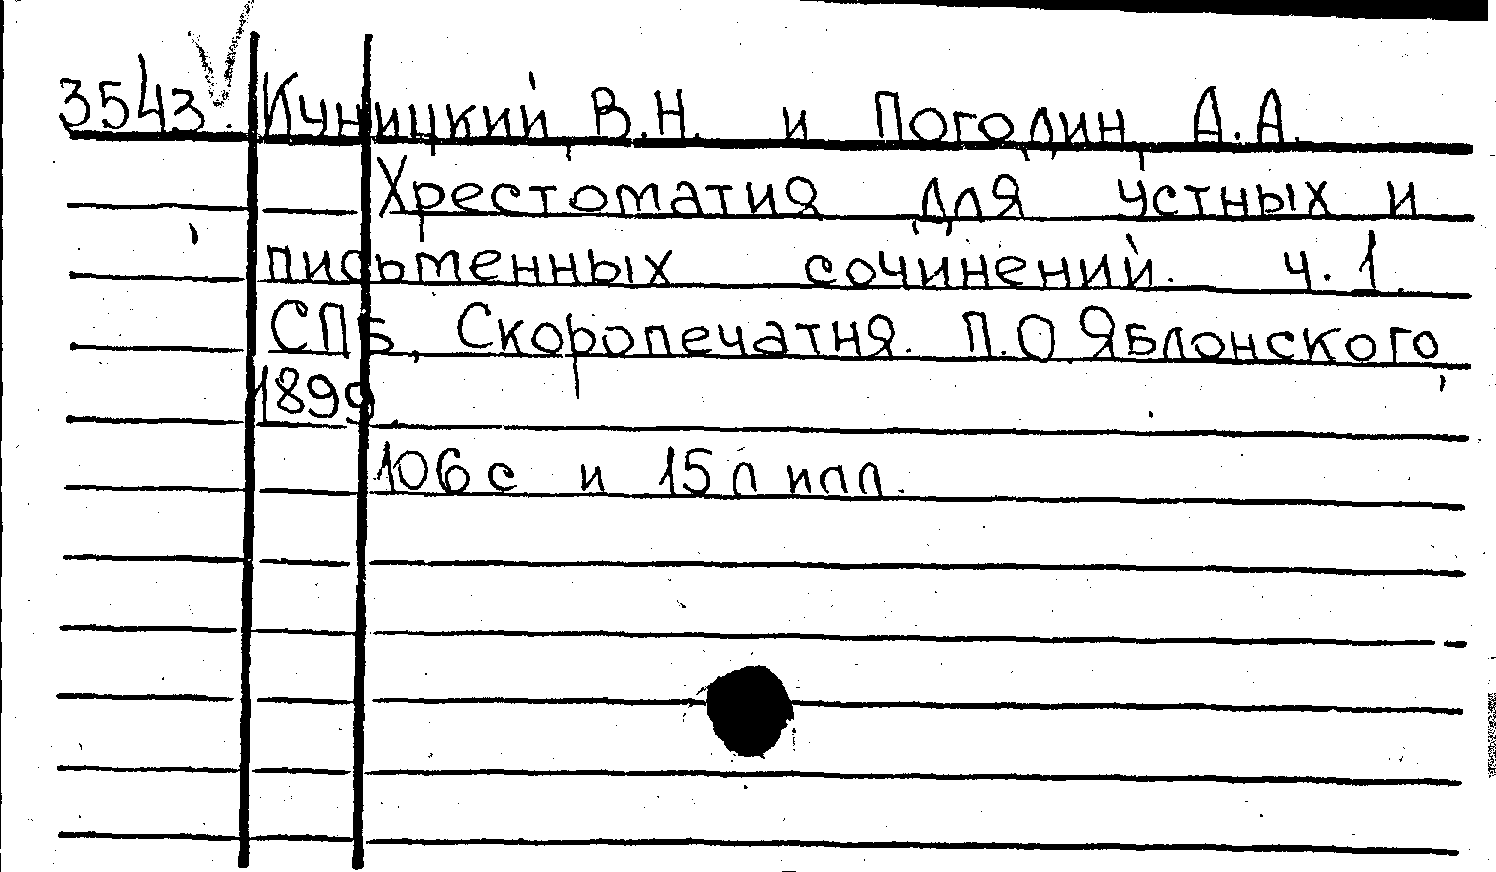 3543. Куницкий В.Н. и Погодин А.А.
Хрестоматия для устных и
письменных сочинений. ч.1.
СПБ, Скоропечатня. П.О Яблонского,
1899.
106 с и 15 л илл.